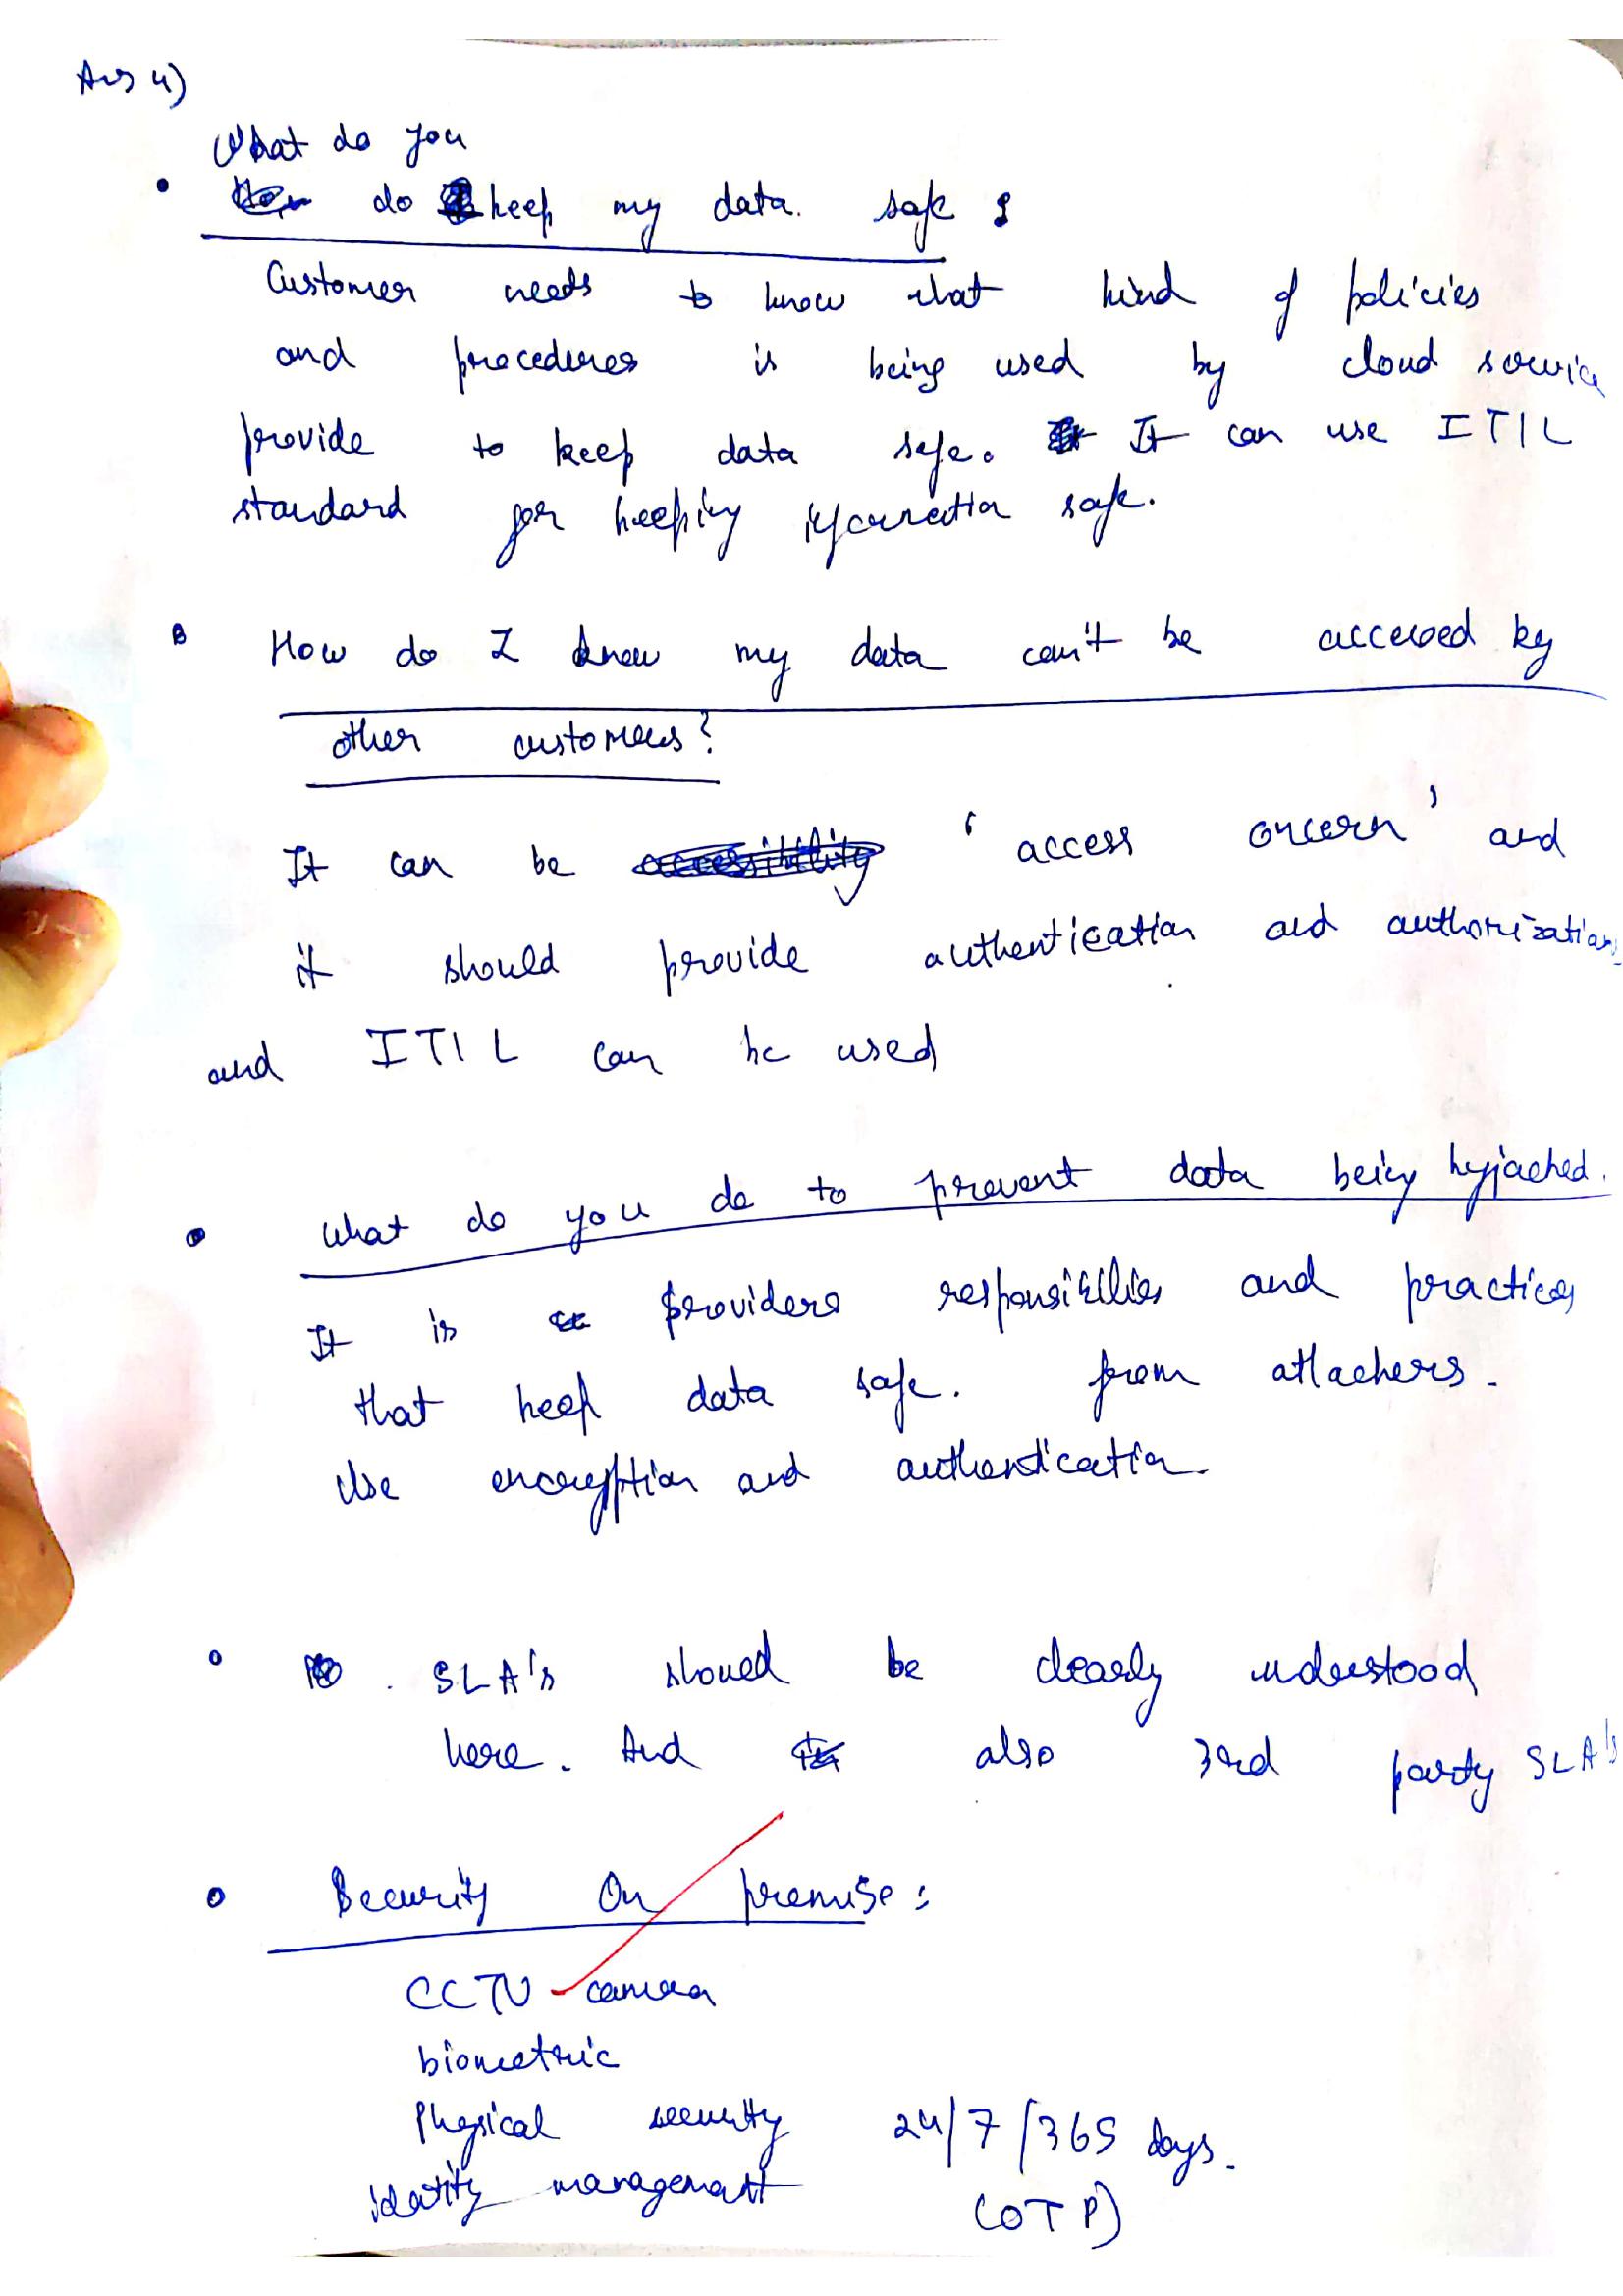 Ans 4)
What do you
• do keep my data safe :
Customer needs to know what kind of policies
and procedures is being used by cloud servic
provide to keep data safe. It can use ITIL
standard for keeping information safe.
• How do I know my data can't be accessed by
other customers?
It can be 'access concern' and
it should provide authentication and authorization
and ITIL can be used
• What do you do to prevent data being hyjacked.
It is providers responsibilies and practices
that keep data safe. from attackers.
Use encryption and authentication.
• SLA's shoued be clearly understood
here. And also 3rd party SLA's
• Security On premise :
CCTV camera
biometric
Physical security 24/7/365 days.
identity management (OTP)